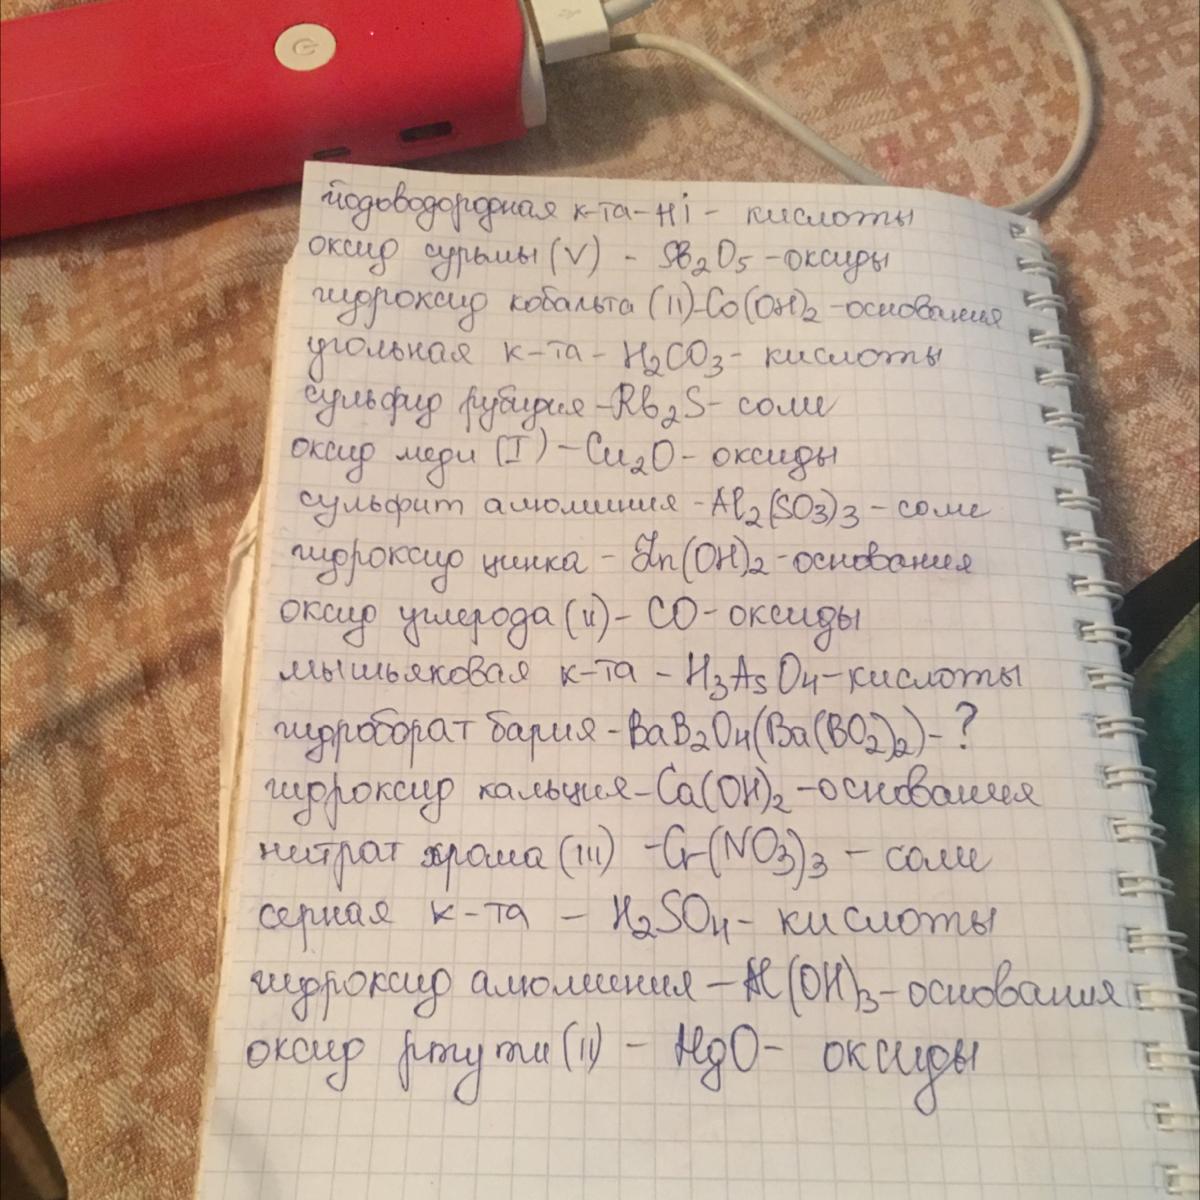 йодоводородная к-та-Hi - кислоты
оксид сурьмы (V) - Sb₂O₅ -оксиды
гидроксид кобальта (II)-Co(OH)₂ -основания
угольная к-та - H₂CO₃ - кислоты
сульфид рубидия -Rb₂S- соли
оксид меди (I) -Cu₂O- оксиды
сульфит алюминия -Al₂(SO₃)₃ - соли
гидроксид цинка - Zn(OH)₂ -основания
оксид углерода (II)- CO-оксиды
мышьяковая к-та - H₃AsO₄-кислоты
гидроборат бария -BaB₂O₄(Ba(BO₂)₂)- ?
гидроксид кальция-Ca(OH)₂ -основания
нитрат хрома (III) -Cr(NO₃)₃ - соли
серная к-та - H₂SO₄- кислоты
гидроксид алюминия - Al(OH)₃-основания
оксид ртути (II) - HgO- оксиды